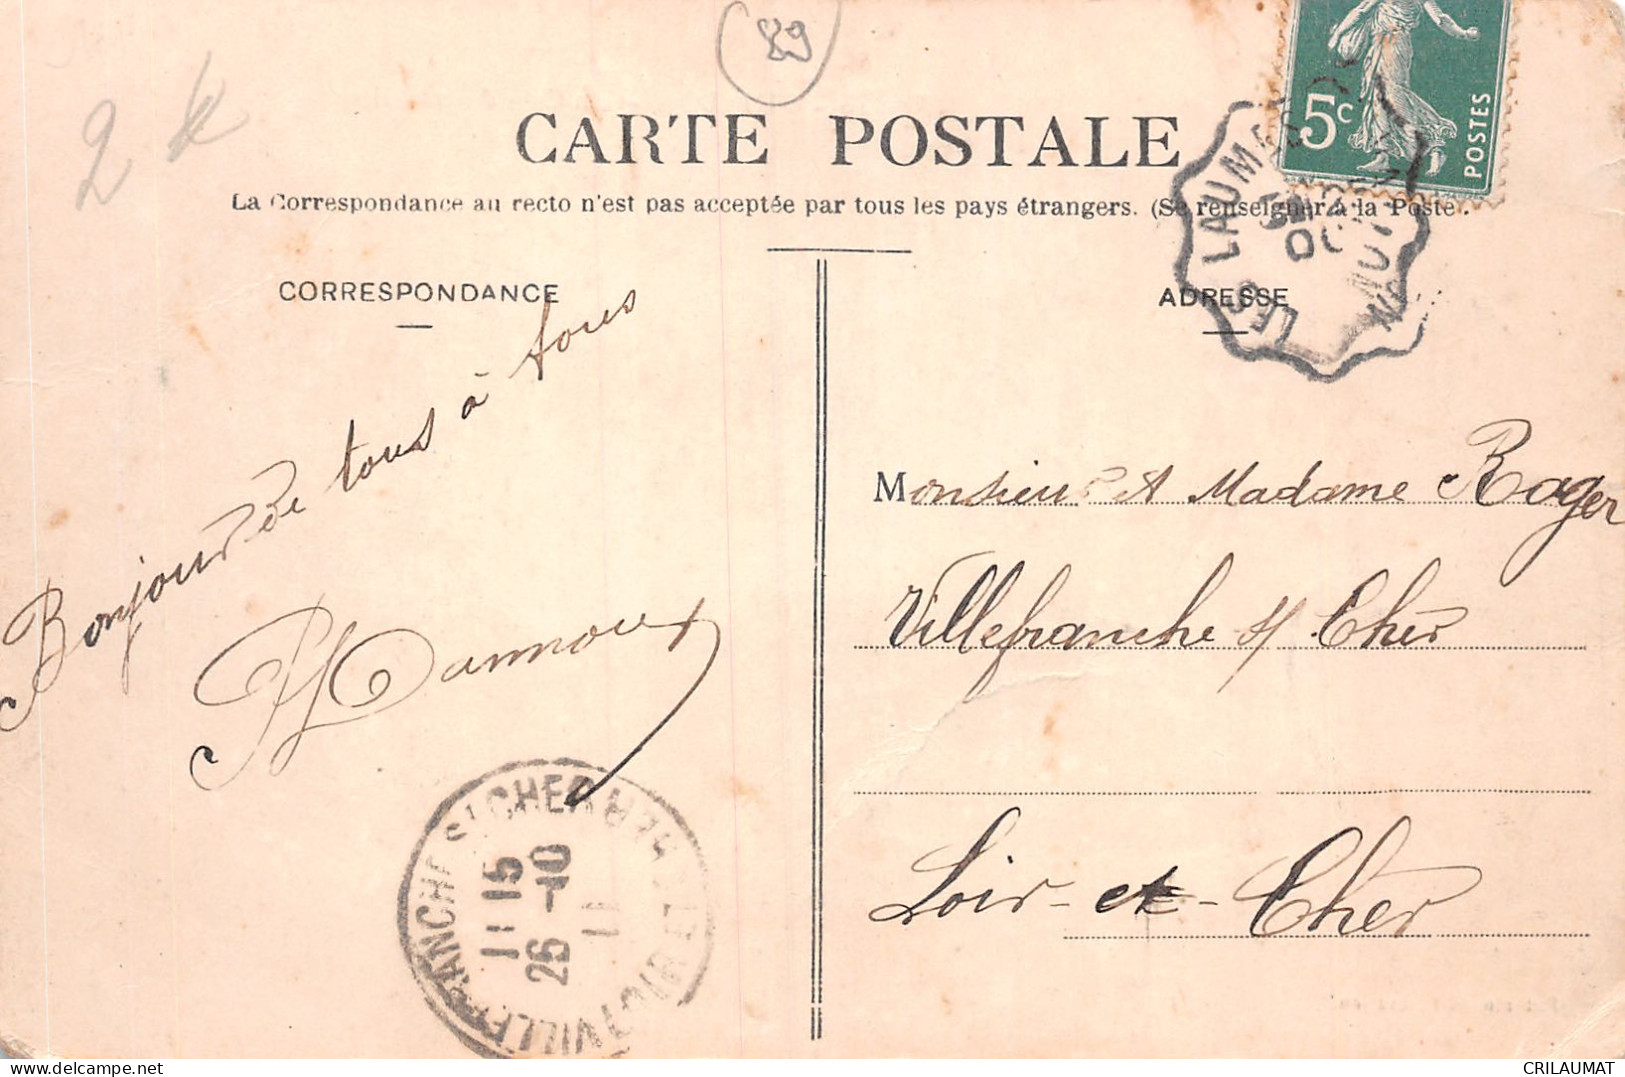 89
2 €
5c
POSTES
CARTE POSTALE
La Correspondance au recto n'est pas acceptée par tous les pays étrangers. (Se renseigner à la Poste.
CORRESPONDANCE
ADRESSE
LES LAUMES
Bonjour de tous à tous
Monsieur et Madame Roger
Villefranche s/ Cher
Loir-et-Cher
VILLEFRANCHE S/CHER
LOIR ET CHER
11 15
26-10
11
CRILAUMAT